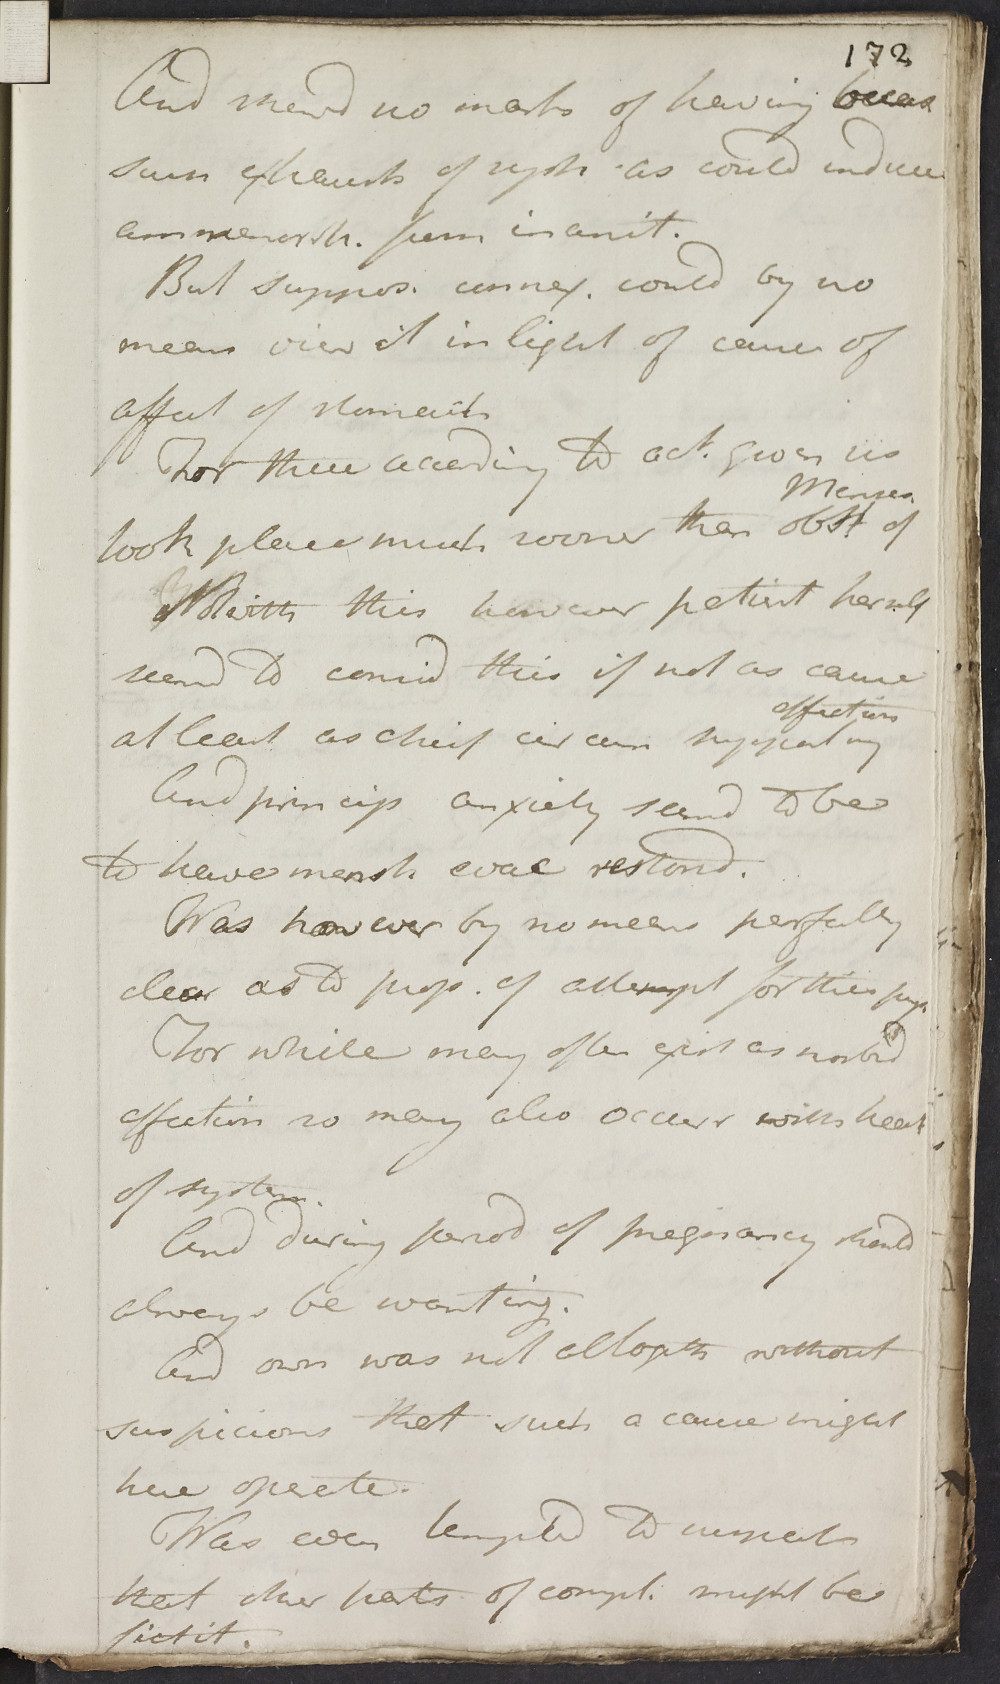 172
And shewd no marks of having been
such exhausts of syst. as could induce
ammenorrh. from inanit.
But suppos. connex. could by no
means view it in light of cause of
affect of stomach
For these according to act. given us
Menses.
took place much sooner than obst of
Notwith this however patient herself
seemd to consid this if not as cause
affection
at least as chief circum supporting
And princip anxiety seemd to be
to have mensh evac restord.
Was however by no means perfectly
clear as to prop. of attempt for this purp
For while may often exist as morbid
affection so may also occurr with healt
of system.
And during period of pregnancy should
always be wanting.
And own was not altogeth without
suspicions that such a cause might
here operate.
Was even tempted to suspect
that other parts of compl. might be
fictit.